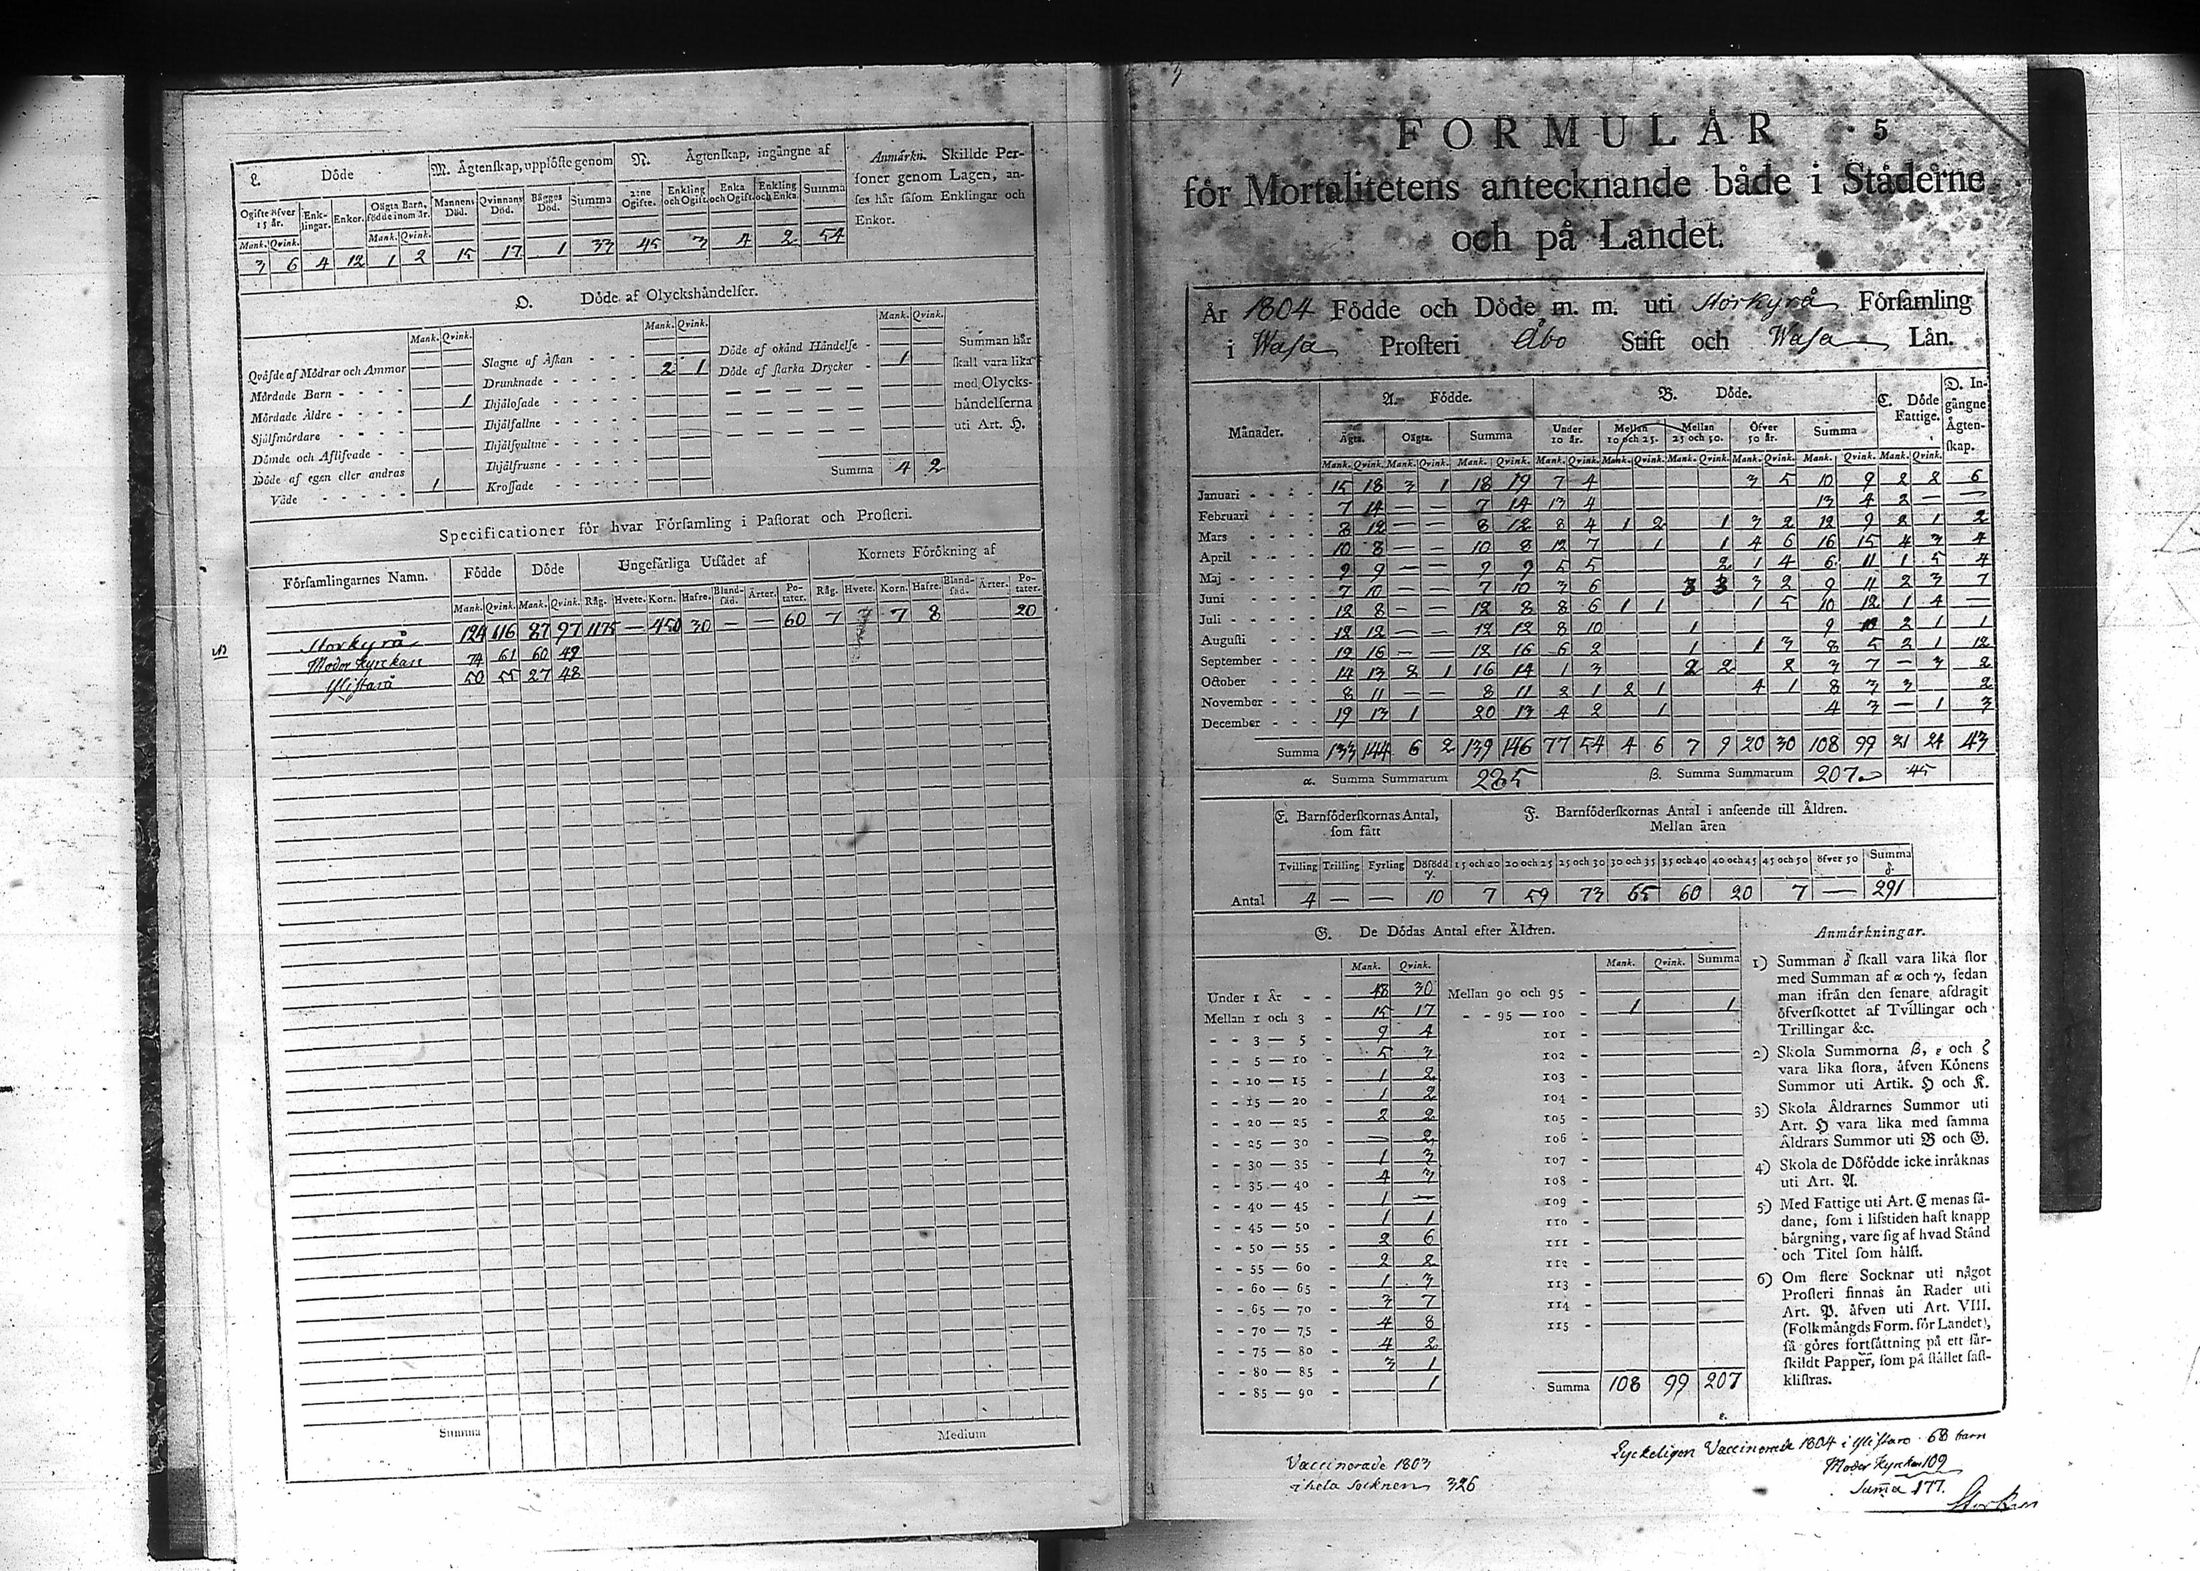 L. Döde
M. Ägtenskap, upplöste genom
N. Ägtenskap, ingångne af
Anmärkn. Skillde Per-
soner genom Lagen, an-
ses här såsom Enklingar och
Enkor.
Ogifte öfver 15 år. Enk-lingar. Enkor. Oägta Barn, födde inom år. Mannens Död. Qvinnans Död. Bägges Död. Summa 2:ne Ogifte. Enkling och Ogift. Enka och Ogift. Enkling och Enka. Summa
Mank. Qvink. Mank. Qvink.
3 6 4 12 1 2 15 17 1 33 45 3 4 2 54
O. Döde af Olyckshändelser.
Mank. Qvink. Mank. Qvink. Mank. Qvink.
Qväfde af Mödrar och Ammor
Mördade Barn - - - - 1
Mördade Äldre - - - -
Självmördare - - - -
Dömde och Aflifvade - -
Döde af egen eller andras
Våde - - - - - 1
Slagne af Åskan - - -
Drunknade - - - - - 2 1
Ihjälosade - - - - -
Ihjälfallne - - - - -
Ihjälsvultne - - - - -
Ihjälfrusne - - - - -
Krossade - - - - -
Döde af okänd Händelse -
Döde af starka Drycker - 1
Summa 4 2
Summan här
skall vara lika
med Olycks-
händelserna
uti Art. H.
Specificationer för hvar Församling i Pastorat och Prosteri.
Församlingarnes Namn. Födde Döde Ungefärliga Utsädet af Kornets Förökning af
Mank. Qvink. Mank. Qvink. Råg. Hvete. Korn. Hafre. Bland-säd. Ärter. Po-tater. Råg. Hvete. Korn. Hafre. Bland-säd. Ärter. Po-tater.
Storkyrå 124 116 87 97 1175 — 450 30 — — 60 7 7 7 8 20
Moder Kyrckan 74 61 60 49
Ylistarå 50 55 27 48
Summa Medium
FORMULÄR 5
för Mortalitetens antecknande både i Städerne
och på Landet.
År 1804 Födde och Döde m. m. uti Storkyrå Församling
i Wasa Prosteri Åbo Stift och Wasa Län.
Månader. A. Födde. B. Döde. C. Döde Fattige. D. In-gångne Ägten-skap.
Ägta. Oägta. Summa Under 10 år. Mellan 10 och 25. Mellan 25 och 50. Öfver 50 år. Summa
Mank. Qvink. Mank. Qvink. Mank. Qvink. Mank. Qvink. Mank. Qvink. Mank. Qvink. Mank. Qvink. Mank. Qvink. Mank. Qvink.
Januari - - - - 15 18 3 1 18 19 7 4 3 5 10 9 2 2 6
Februari - - - 7 14 — — 7 14 13 4 13 4 2 — —
Mars - - - - 8 12 — — 8 12 8 4 1 2 1 3 2 12 9 2 1 2
April - - - - 10 8 — — 10 8 12 7 1 1 4 6 16 15 4 3 4
Maj - - - - 9 9 — — 9 9 5 5 2 1 4 6 11 1 5 4
Juni - - - - 7 10 — — 7 10 3 6 3 3 3 2 9 11 2 3 7
Juli - - - - 12 8 — — 12 8 8 6 1 1 1 5 10 12 1 4 —
Augusti - - - 12 12 — — 12 12 8 10 1 9 10 2 1 1
September - - - 12 16 — — 12 16 6 2 1 1 3 8 5 2 1 12
October - - - 14 13 2 1 16 14 1 3 2 2 2 3 7 — 3 2
November - - - 8 11 — — 8 11 2 1 2 1 4 1 8 3 3 2
December - - - 19 13 1 20 13 4 2 1 4 3 — 1 3
Summa 133 144 6 2 139 146 77 54 4 6 7 9 20 30 108 99 21 24 43
α. Summa Summarum 285 β. Summa Summarum 207 45
E. Barnföderskornas Antal,
som fått
F. Barnföderskornas Antal i anseende till Åldren.
Mellan åren
Tvilling Trilling Fyrling Dödfödd γ. 15 och 20 20 och 25 25 och 30 30 och 35 35 och 40 40 och 45 45 och 50 öfver 50 Summa δ.
Antal 4 — — 10 7 59 73 65 60 20 7 — 291
G. De Dödas Antal efter Åldren.
Mank. Qvink. Mank. Qvink. Summa
Under 1 År - - 48 30
Mellan 1 och 3 - 15 17
- - 3 — 5 - 9 4
- - 5 — 10 - 5 3
- - 10 — 15 - 1 2
- - 15 — 20 - 1 2
- - 20 — 25 - 2 2
- - 25 — 30 - — 2
- - 30 — 35 - 1 3
- - 35 — 40 - 4 3
- - 40 — 45 - 1 —
- - 45 — 50 - 1 1
- - 50 — 55 - 2 6
- - 55 — 60 - 2 2
- - 60 — 65 - 1 3
- - 65 — 70 - 3 7
- - 70 — 75 - 4 8
- - 75 — 80 - 4 2
- - 80 — 85 - 3 1
- - 85 — 90 - 1
Mellan 90 och 95 -
- - 95 — 100 - 1 1
101 -
102 -
103 -
104 -
105 -
106 -
107 -
108 -
109 -
110 -
111 -
112 -
113 -
114 -
115 -
Summa 108 99 207
ε.
Anmärkningar.
1) Summan δ skall vara lika stor
med Summan af α och γ, sedan
man ifrån den senare afdragit
öfverskottet af Tvillingar och
Trillingar &c.
2) Skola Summorna β, ε och ζ
vara lika stora, äfven Könens
Summor uti Artik. H och K.
3) Skola Åldrarnes Summor uti
Art. H vara lika med samma
Åldrars Summor uti B och G.
4) Skola de Döfödde icke inräknas
uti Art. A.
5) Med Fattige uti Art. C menas så-
dane, som i lifstiden haft knapp
bärgning, vare sig af hvad Stånd
och Titel som hälst.
6) Om flere Socknar uti något
Prosteri finnas än Rader uti
Art. P. äfven uti Art. VIII.
(Folkmängds Form. för Landet),
så göres fortsättning på ett sär-
skildt Papper, som på stället fast-
klistras.
Vaccinerade 1803
i hela Socknen 326
Lyckeligen Vaccinerade 1804 i Ylistaro 68 barn
Moder Kyrckan 109
Summa 177.